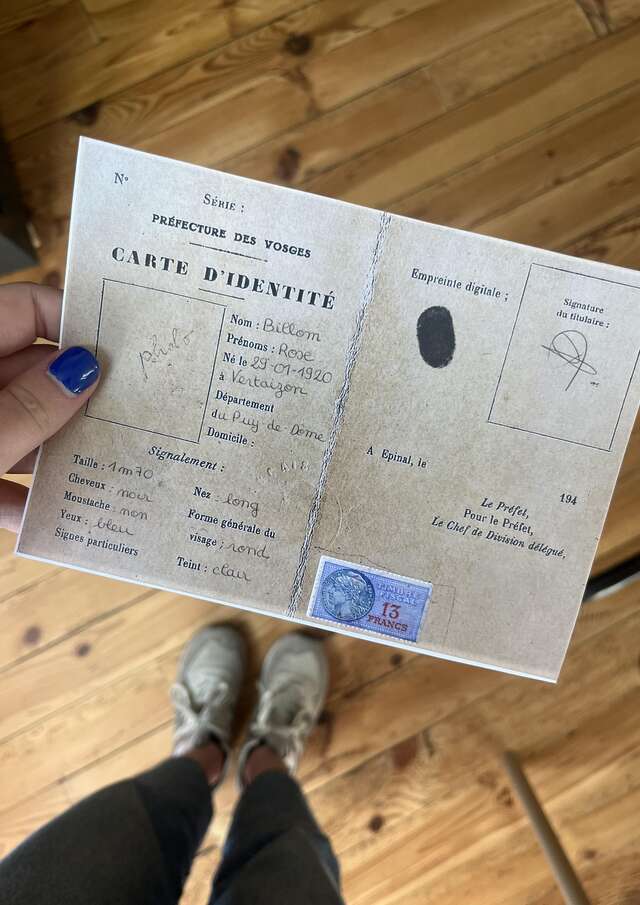 N°
SÉRIE :
PRÉFECTURE DES VOSGES
CARTE D'IDENTITÉ
photo
Nom : Billom
Prénoms : Rose
Né le 29-01-1920
à Vertaizon
Département
du Puy-de-Dôme
Domicile :
Signalement :
Taille : 1m70
Cheveux : noir
Moustache : non
Yeux : bleu
Signes particuliers
Nez : long
Forme générale du
visage ; rond
Teint : clair
Empreinte digitale ;
Signature
du titulaire :
A Epinal, le
194
Le Préfet,
Pour le Préfet,
Le Chef de Division délégué,
TIMBRE
FISCAL
13
FRANCS